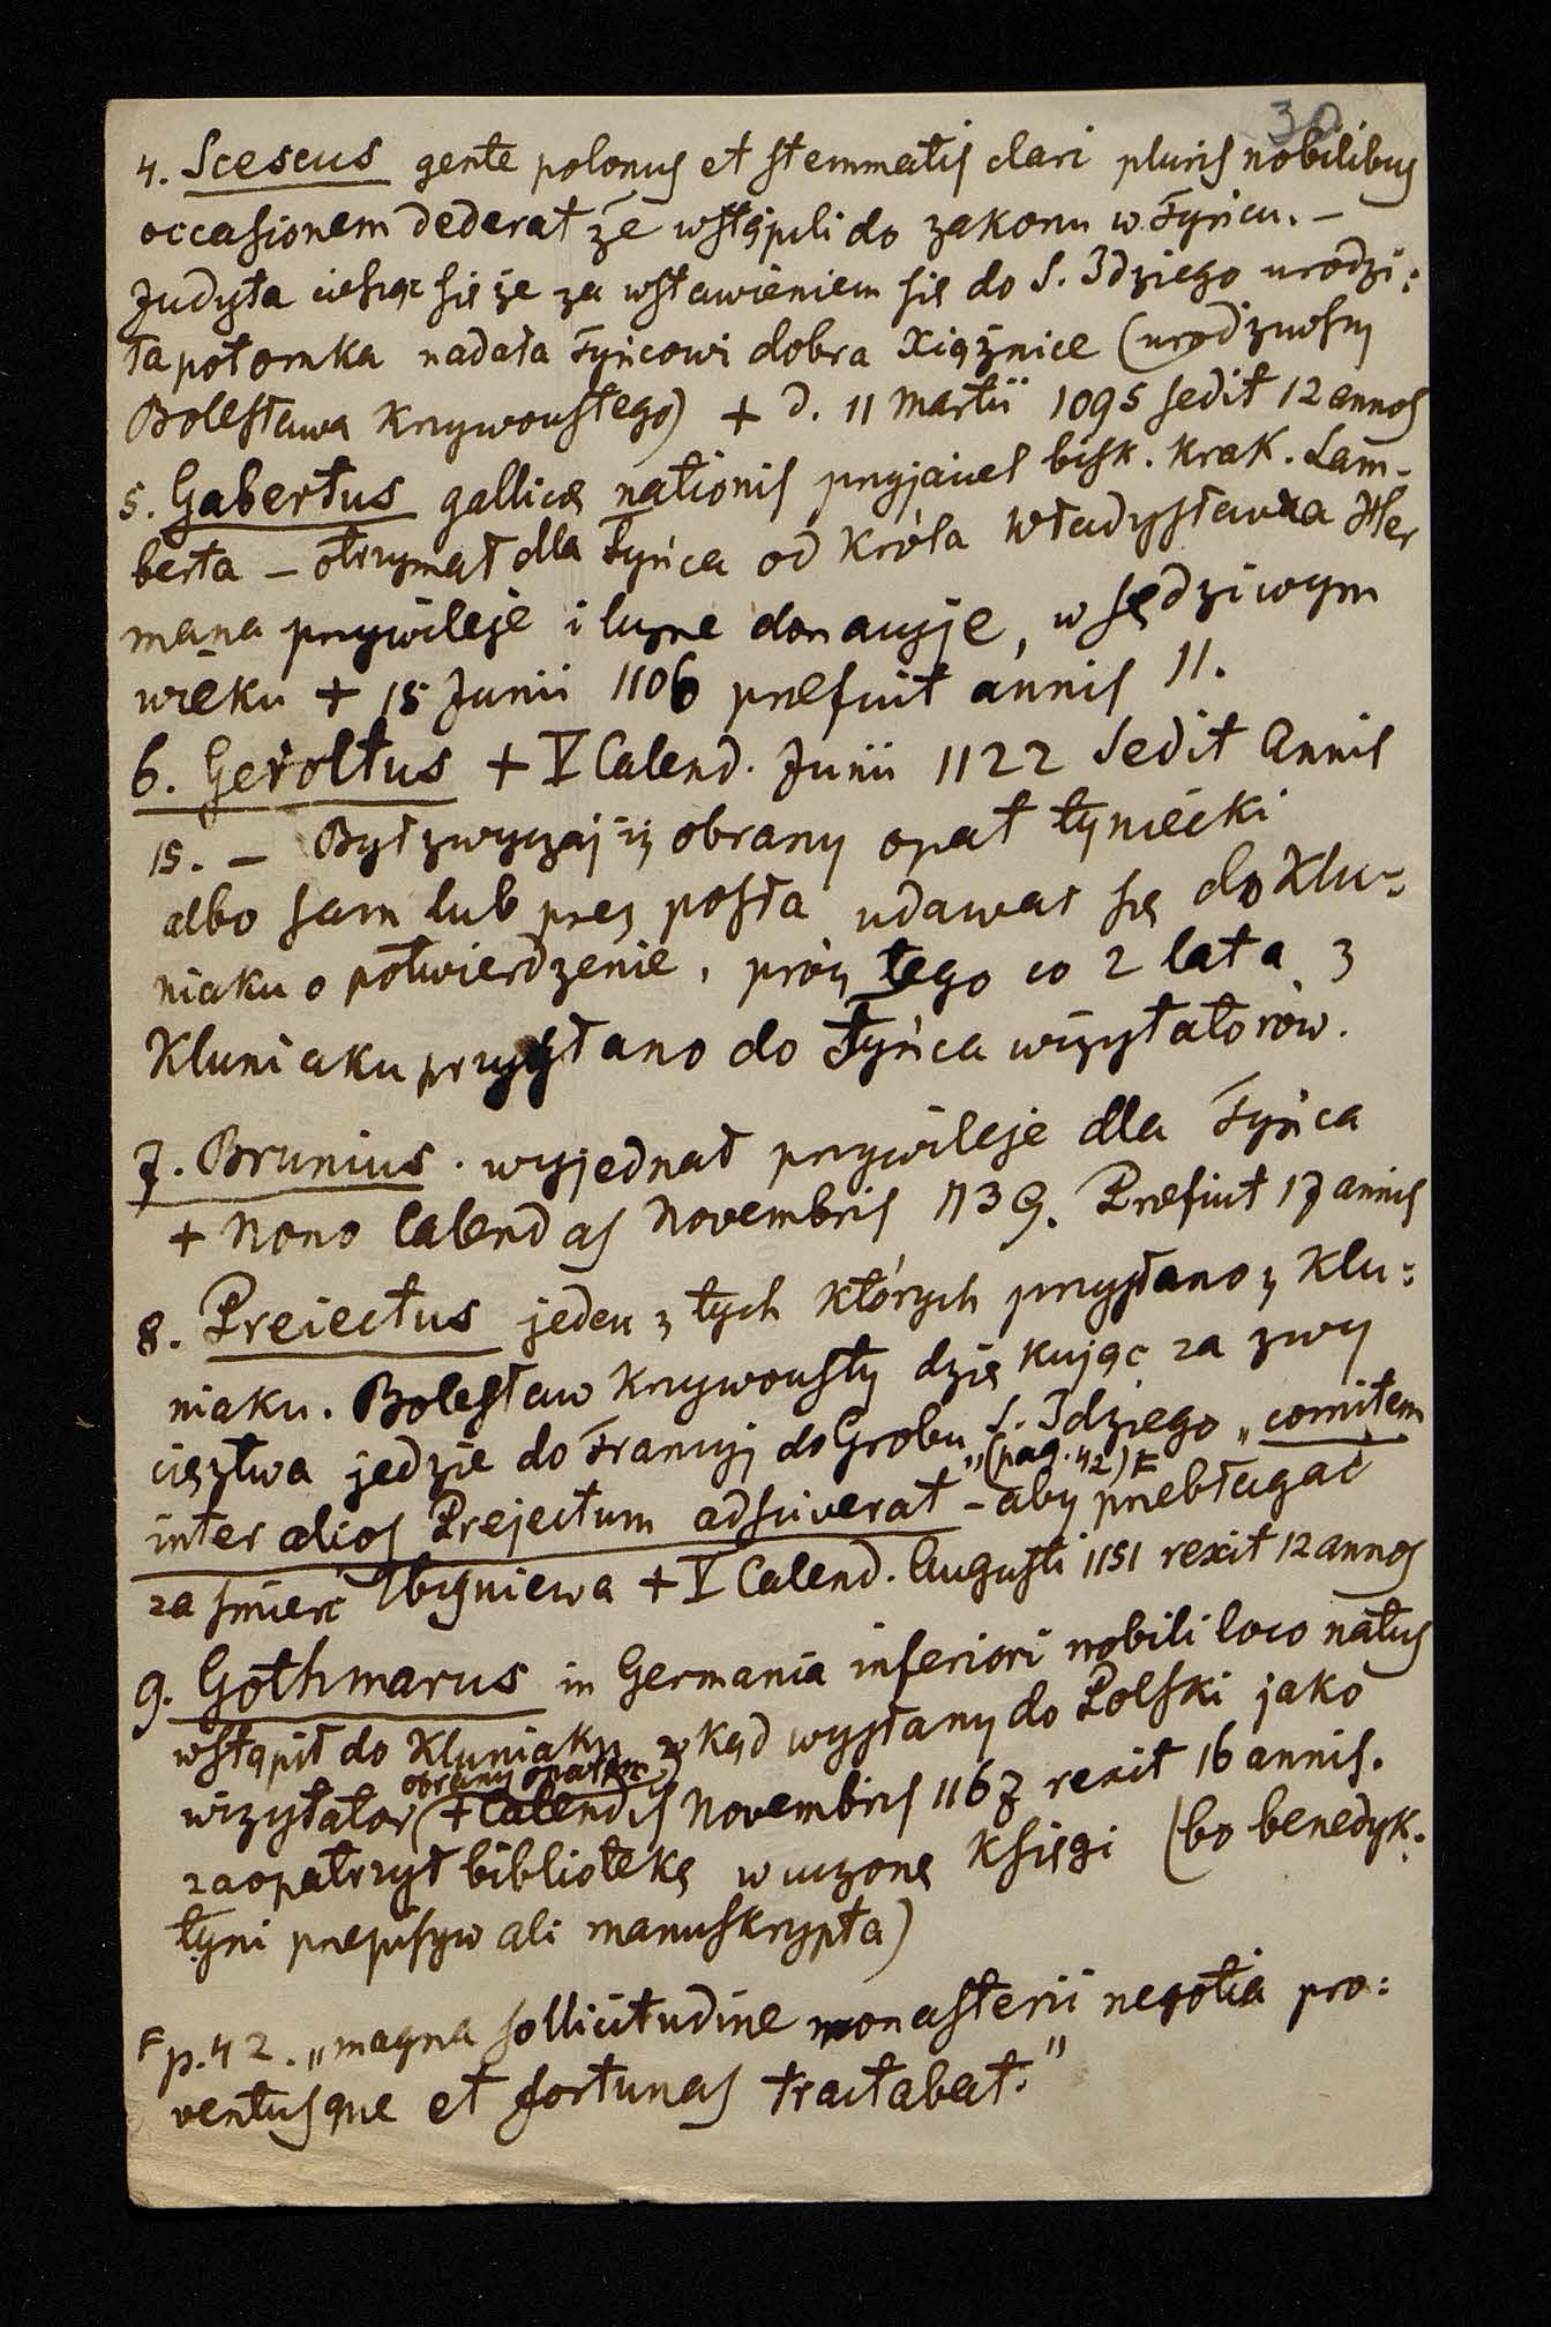 30
4. Scescus gente polonus et stemmatis clari pluris nobilibus
occasionem dederat że wstąpili do zakonu w Tyńcu. –
Judyta ciesząc się że za wstawieniem się do S. Idziego urodzi:
ła potomka nadała Tyńcowi dobra Xiążnice (urodziwszy
Bolesława Krzywoustego) + d. 11 Martii 1095 sedit 12 annos
5. Gabertus gallicæ nationis przyjaciel bisk. Krak. Lam-
berta – otrzymał dla Tyńca od Króla Władysława Her
mana przywileje i liczne donacyje, w sędziwym
wieku + 15 Junii 1106 præfuit annis 11.
6. Geroltus + V Calend. Junii 1122 Sedit Annis
15. – Był zwyczaj iż obrany opat tyniecki
albo sam lub przez posła udawał się do Klu-
niaku o potwierdzenie, prócz tego co 2 lata z
Kluniaku przysłano do Tyńca wizytatorów.
7. Brunius. wyjednał przywileje dla Tyńca
+ Nono Calendas Novembris 1139. Præfuit 17 annis
8. Preiectus jeden z tych których przysłano z Klu:
niaku. Bolesław Krzywousty dziękując za zwy
cięztwa jedzie do Francyj do Grobu S. Idziego „comitem
inter alios Prejectum adsciverat" (pag. 42) F – aby przebłagać
za śmierć Zbigniewa + V Calend. Augusti 1151 rexit 12 annos
9. Gothmarus in Germania inferiori nobili loco natus
wstąpił do Kluniaku zkąd wysłany do Polski jako
wizytator (obrany opatem) + Calendis Novembris 1167 rexit 16 annis.
zaopatrzył bibliotekę w uczone Księgi (bo benedyk:
tyni przepisywali manuskrypta)
F p. 42. „magna sollicitudine monasterii negotia pro:
ventusque et fortunas tractabat."